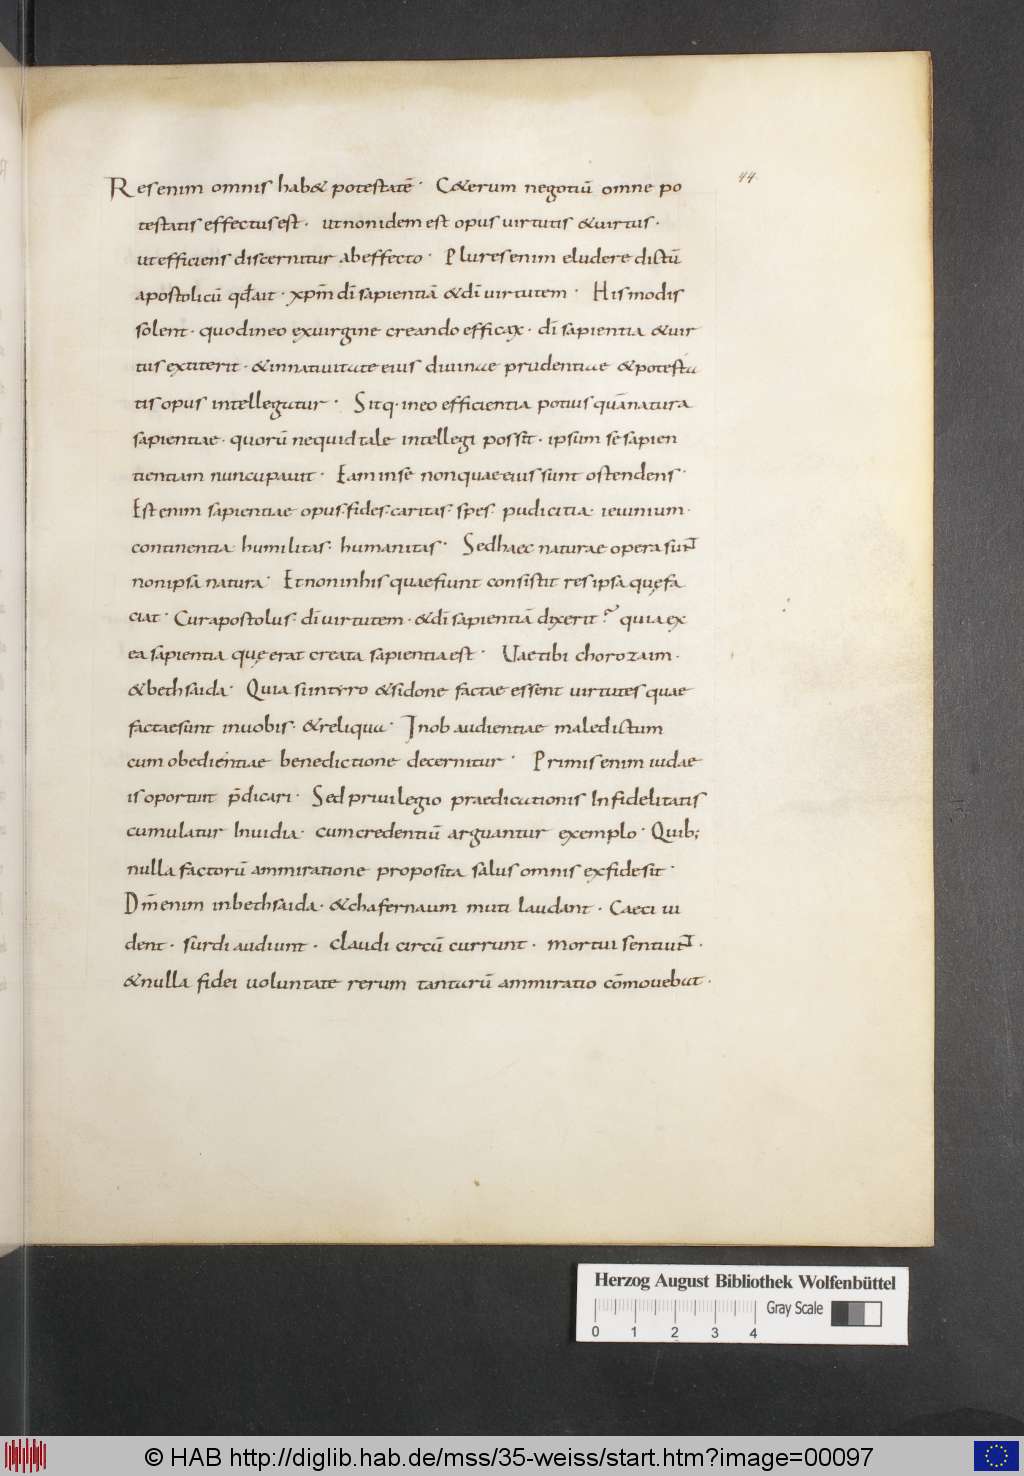 44
Res enim omnis hab& potestatē· C&erum negotiū omne po
testatis effectus est· ut non idem est opus uirtutis &uirtus·
ut efficiens discernitur ab effecto· Plures enim eludere dictū
apostolicū qđ ait· xp̄m dī sapientiā &dī uirtutem· His modis
solent· quod in eo ex uirgine creando efficax· dī sapientia &uir
tus extiterit· &in natiuitate eius diuinae prudentiae &potesta
tis opus intellegatur· Sitq· in eo efficientia potius quā natura
sapientiae· quorū nequid tale intellegi possit· ipsum se sapien
tientiam nuncupauit· Eam in se non quae eius sunt ostendens·
Est enim sapientiae opus· fides· caritas· spes· pudicitia· ieiunium·
continentia humilitas· humanitas· Sed haec naturae opera sunt
non ipsa natura· Et non in his quae fiunt consistit res ipsa quę fa
ciat· Cur apostolus· dī uirtutem· &dī sapientiā dixerit? quia ex
ea sapientia quę erat creata sapientia est· Uae tibi chorozaim·
&bethsaida· Quia si in tyro &sidone factae essent uirtutes quae
factae sunt in uobis· &reliqua· In obaudientiae maledictum
cum obedientiae benedictione decernitur· Primis enim iudae
is oportuit p̄dicari· Sed priuilegio praedicationis Infidelitatis
cumulatur Inuidia· cum credentiū arguantur exemplo· Quib;
nulla factorū ammiratione proposita salus omnis ex fide sit·
Dm̄ enim in bethsaida· &chafernaum muti laudant· Caeci ui
dent· surdi audiunt· claudi circū currunt· mortui sentiunt·
&nulla fidei uoluntate rerum tantarū ammiratio cōmouebat·
Herzog August Bibliothek Wolfenbüttel
Gray Scale
0 1 2 3 4
© HAB http://diglib.hab.de/mss/35-weiss/start.htm?image=00097